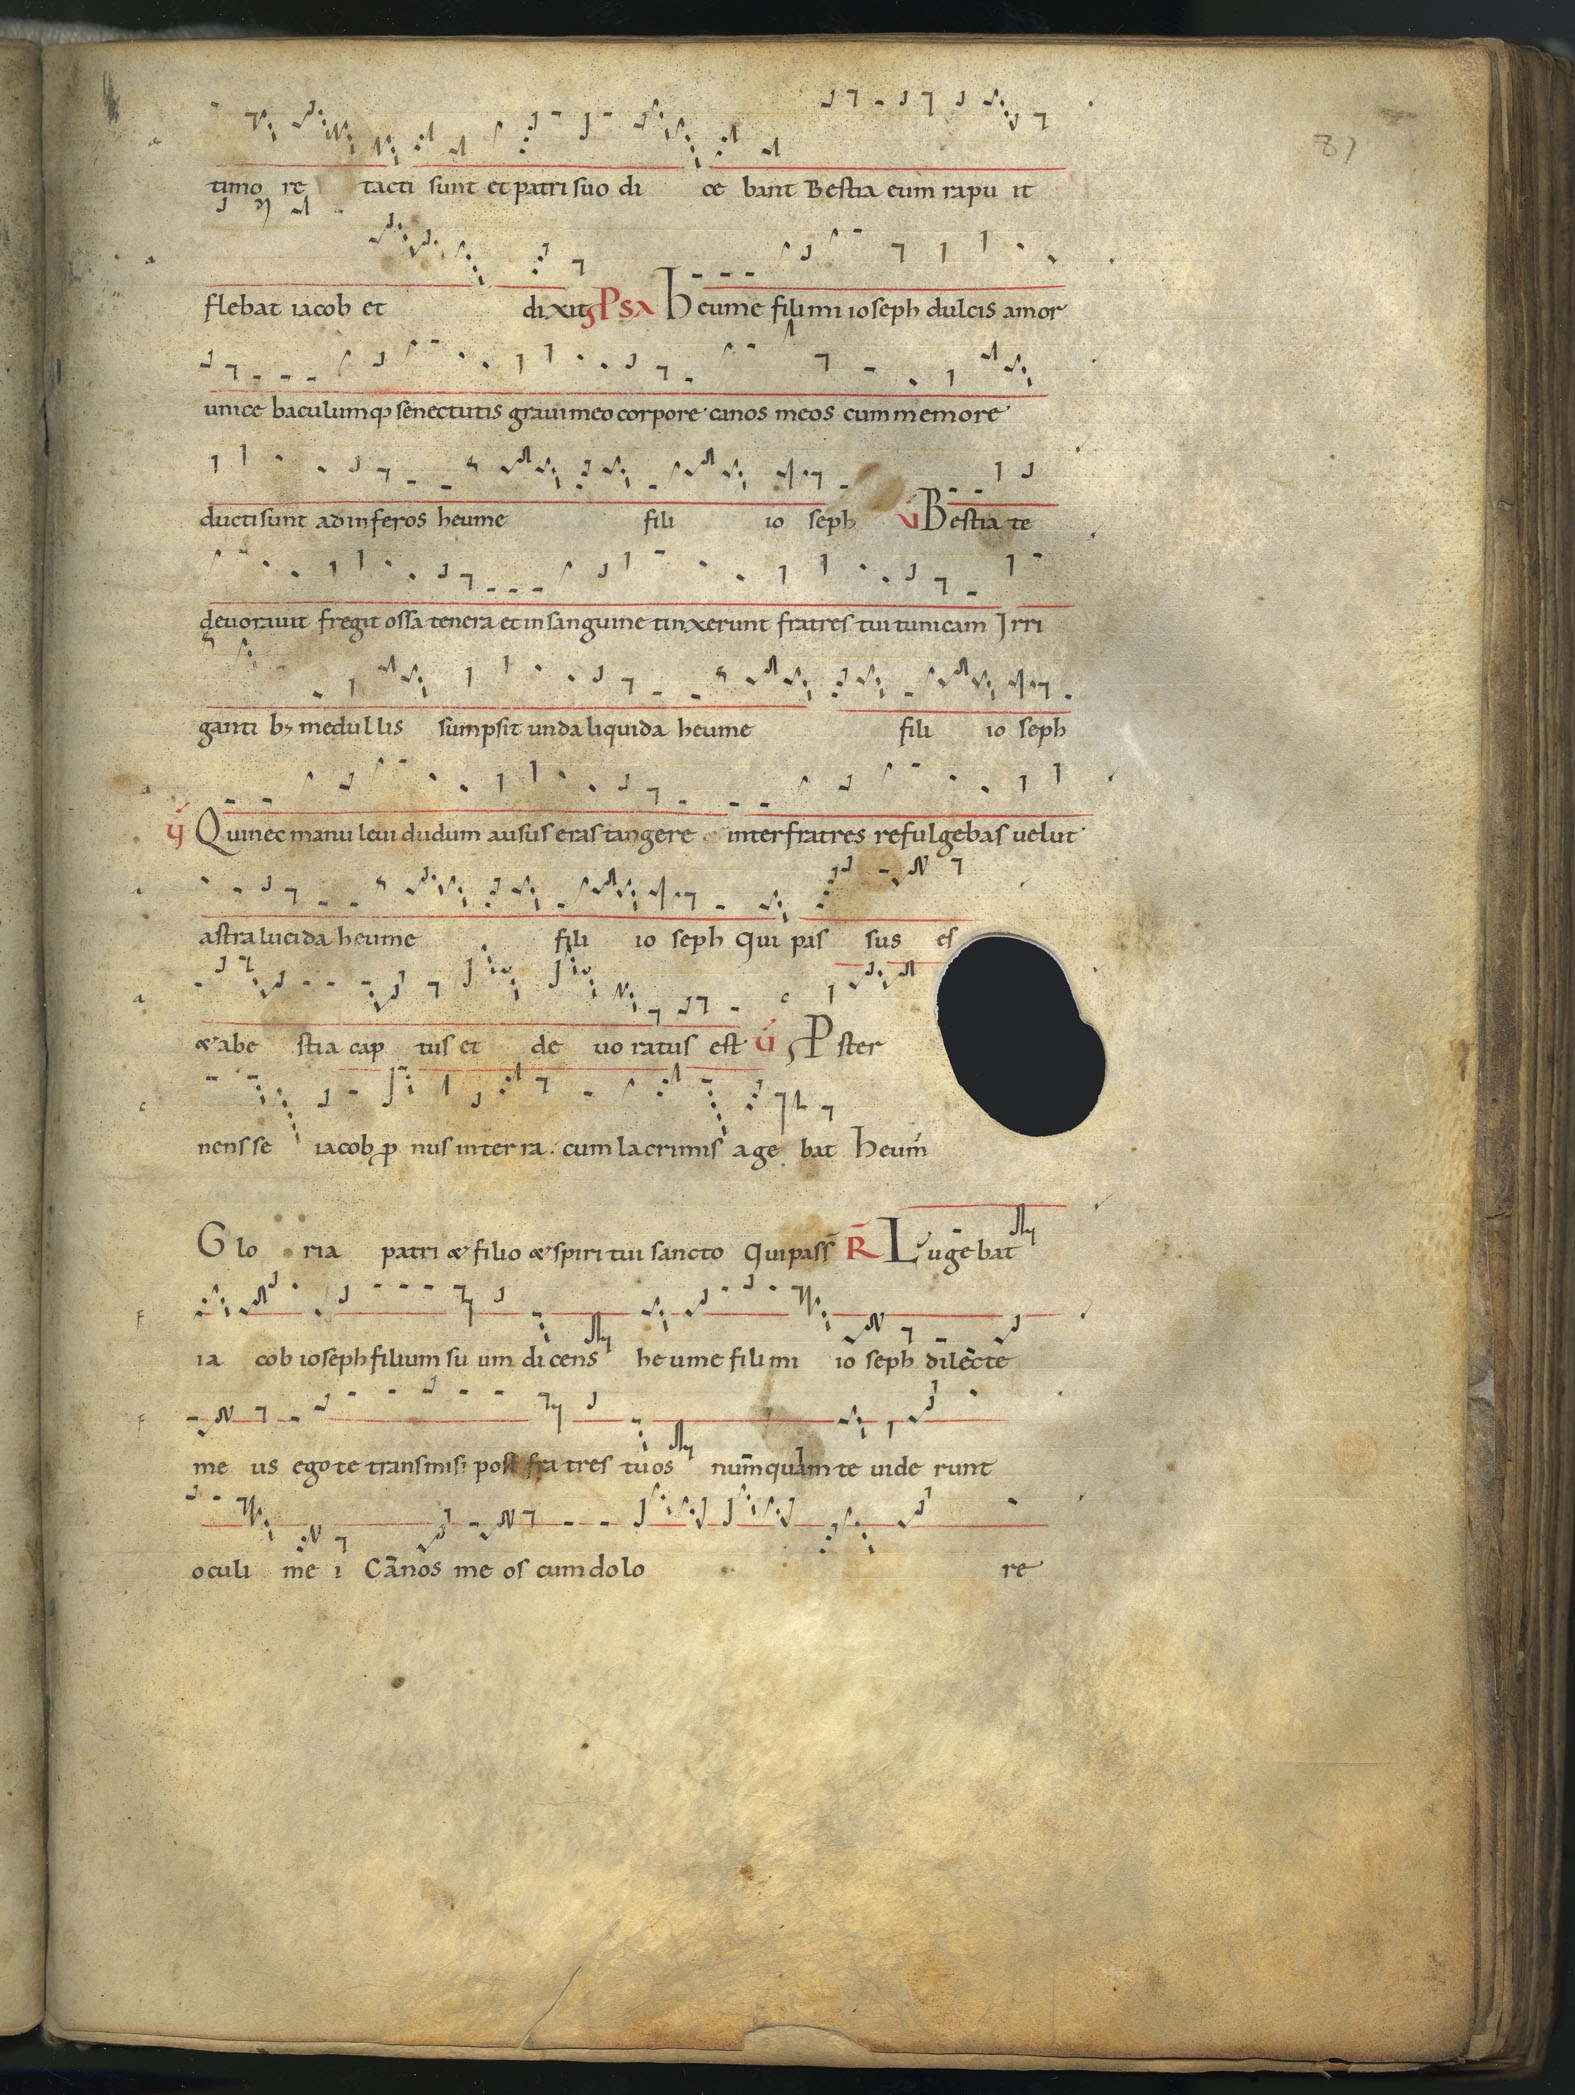 87
timo re tacti sunt et patri suo di ce bant Bestia eum rapu it
flebat iacob et dixit Psa heume fili mi ioseph dulcis amor
unice baculumq; senectutis graui meo corpore canos meos cum memore
ducti sunt ad inferos heume fili io seph V Bestia te
deuorauit fregit ossa tenera et in sanguine tinxerunt fratres tui tunicam Irri
ganti b; medullis sumpsit unda liquida heume fili io seph
V Qui nec manu leui dudum ausus eras tangere inter fratres refulgebas uelut
astra lucida heume fili io seph Qui pas sus es
& abe stia cap tus et de uo ratus est V Pster
nens se iacob p nus in ter ra . cum lacrimis age bat heum
Glo ria patri & filio & spiri tui sancto Qui pass R Lugebat
ia cob ioseph filium su um dicens heume fili mi io seph dilecte
me us ego te transmisi post fra tres tuos numquam te uide runt
oculi me i Canos me os cum dolo re